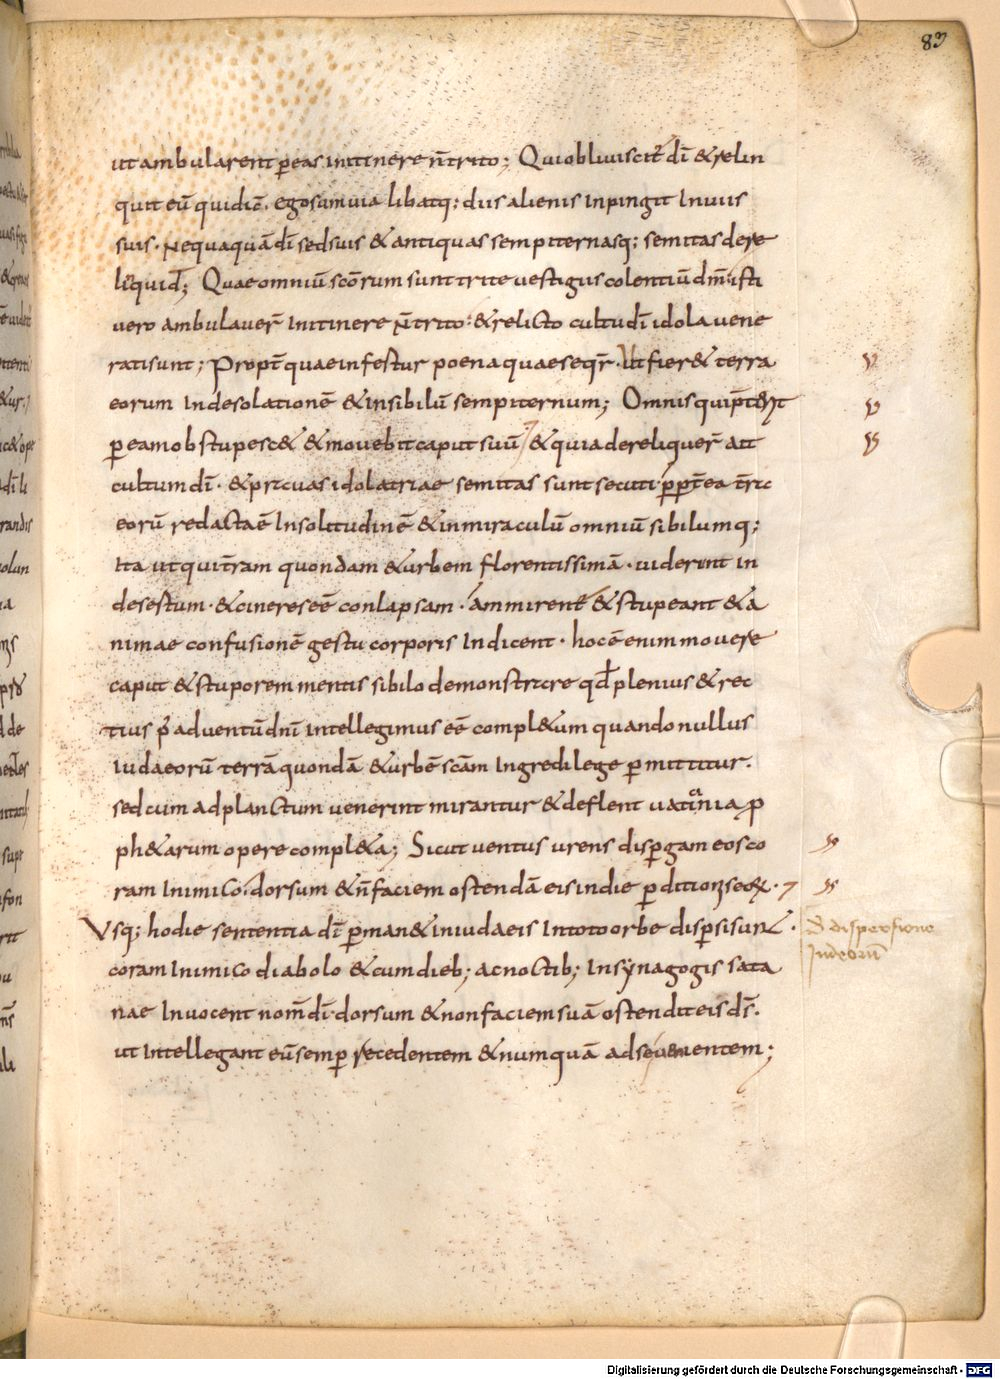 83
ut ambularent p̄ eas in itinere n̄ trito; Qui obliuiscit̄ dī & relin
quit eū qui diĉ. ego sum uia libatq; diis alienis inpingit in uiis
suis. Nequaquā dī sed suis & antiquas sempiternasq; semitas dere
liquid; Quae omniū scōrum sunt trite uestigiis colentiū dm̄. isti
uero ambulauer̄ in itinere n̄ trito. & relicto cultu dī idola uene
rati sunt; Propt̄ quae infestur poena quae seqr̄. Ut fier& terra
eorum in desolationē & in sibilū sempiternum; Omnis qui pt̄erit
p̄ eam obstupesc& & mouebit caput suū & quia dereliquer̄ au
cultum dī. & prauas idolatriae semitas sunt secuti. ppt̄ea t̄ra
eorū redacta ē in solitudinē & in miraculū omniū sibilumq;
Ita ut qui t̄ram quondam & urbem florentissimā. uiderint in
desertum. & cineres eē conlapsam. ammirent̄ & stupeant & a
nimae confusionē gestu corporis indicent. hoc ē enim mouere
caput & stuporem mentis sibilo demonstrare qd̄ plenius & rec
tius p̄ aduentū dnī intellegimus eē compl&um quando nullus
iudaeorū terrā quondā & urbē scām ingredi lege p̄mittitur.
sed cum ad planctum uenerint mirantur & deflent uaticinia p̄
ph&arum opere compl&a; Sicut uentus urens disp̄gam eos co
ram inimico. dorsum & n̄ faciem ostendā eis in die p̄ditionis eorum.
Usq; hodie sententia dī p̄man& in iudaeis in toto orbe disp̄si sunt.
coram inimico diabolo & cum dieb; ac noctib; in synagogis sata
nae inuocent nom̄ dī. dorsum & non faciem suā ostendit eis ds̄.
ut intellegant eū semp̄ recedentem & numquā ad se uenientem;
d dispersione
Judeorū
Digitalisierung gefördert durch die Deutsche Forschungsgemeinschaft - DFG